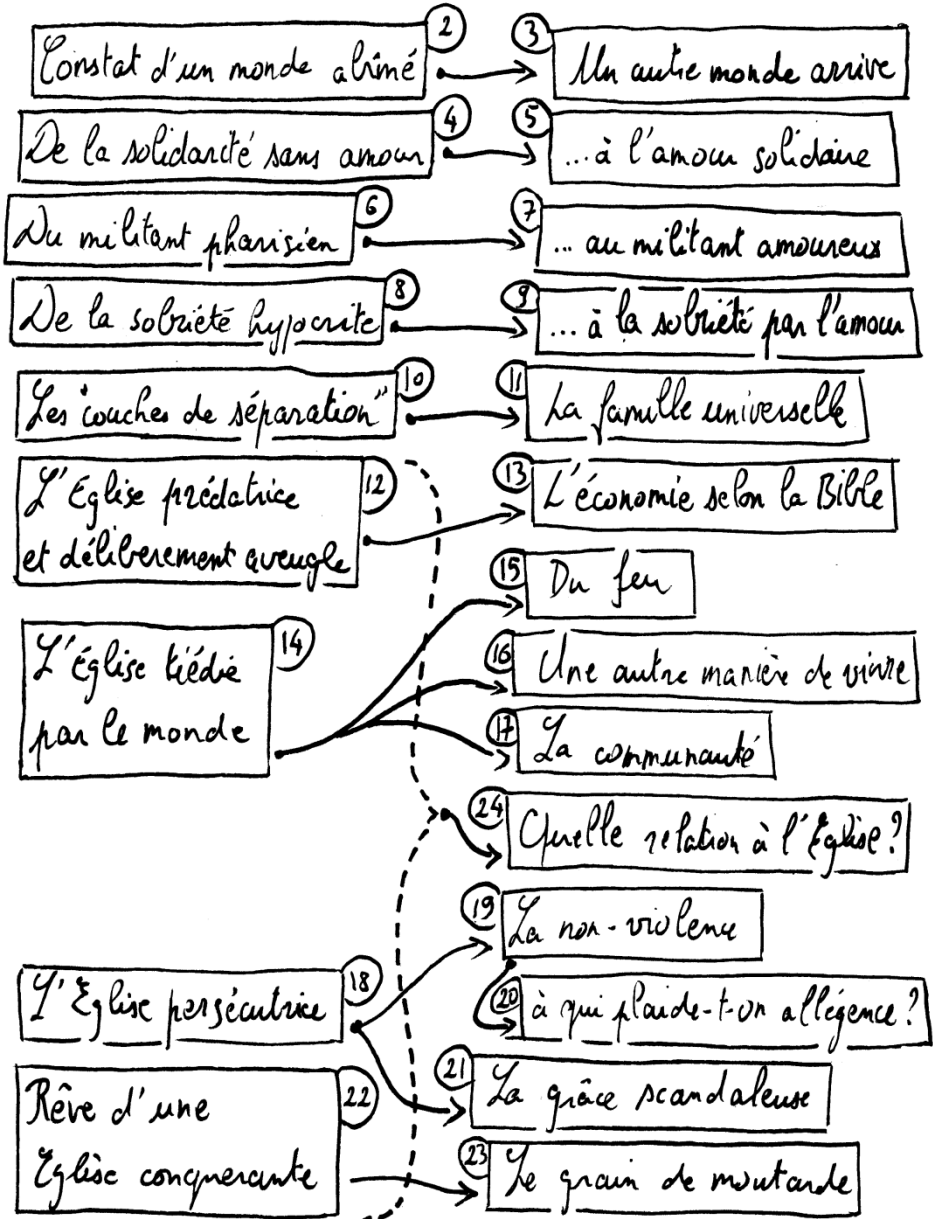 2
Constat d'un monde abîmé
3
Un autre monde arrive
4
De la solidarité sans amour
5
...à l'amour solidaire
6
Du militant pharisien
7
... au militant amoureux
8
De la sobriété hypocrite
9
... à la sobriété par l'amour
10
Les "couches de séparation"
11
La famille universelle
12
L'Eglise prédatrice
et déliberement aveugle
13
L'économie selon la Bible
14
L'église tiédie
par le monde
15
Du feu
16
Une autre manière de vivre
17
La communauté
24
Quelle relation à l'Eglise?
18
L'Eglise persécutrice
19
La non-violence
20
à qui plaide-t-on allégence?
21
La grâce scandaleuse
22
Rêve d'une
Eglise conquerante
23
Le grain de moutarde